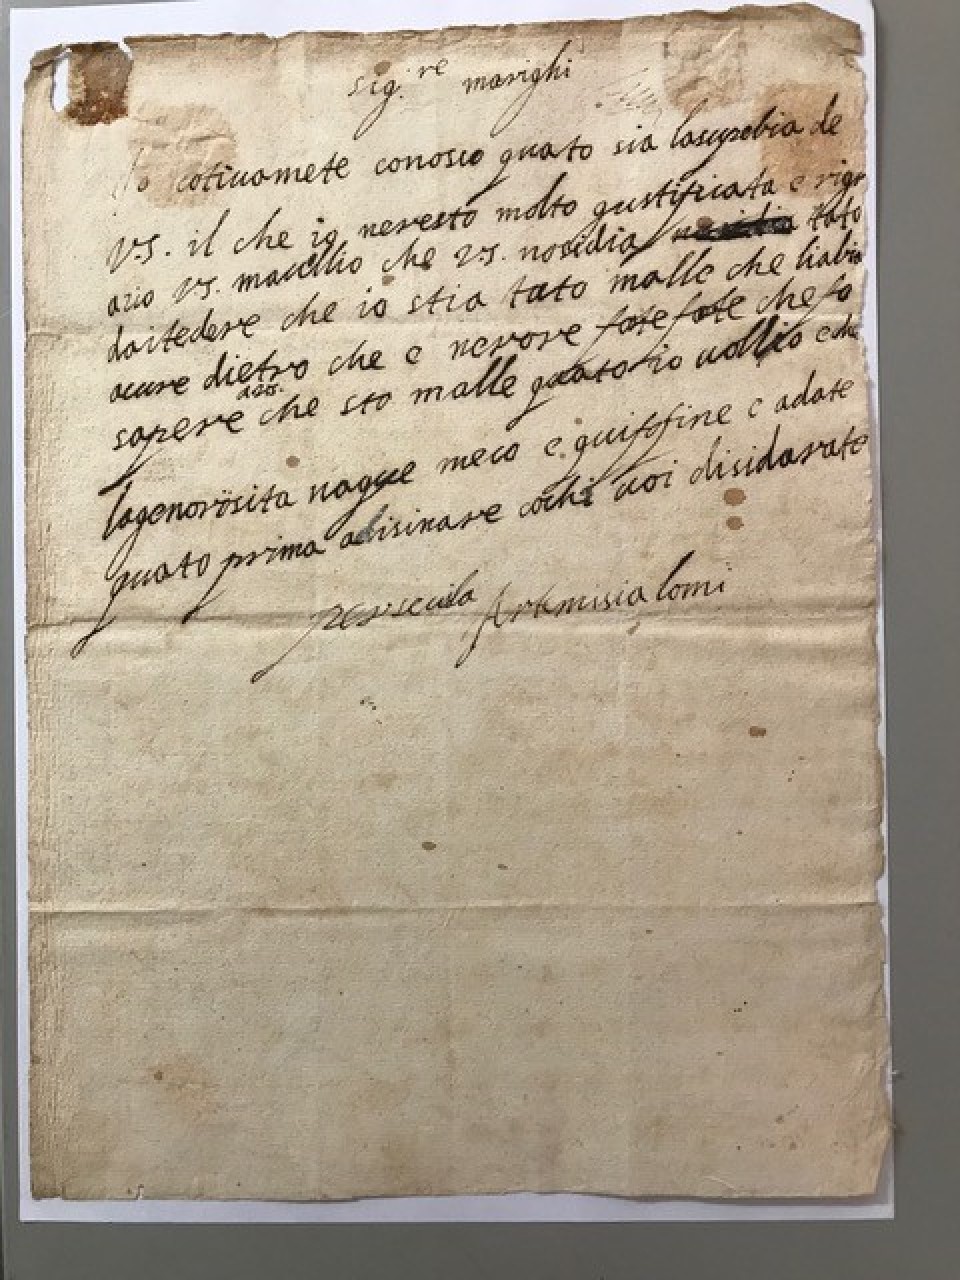 sig.re marighi
Io cotinamete conosco quato sia lasuperbia de
V.S. il che io neresto molto gustifitiata e rigr
azio V.S. macellio che V.S. nosidia tato
daitedere che io stia tato malle che liabia
acure dietro che e nerore fate fate cheso
sapere che sto malle quatorio uollio e che
lagenorosita naque meco e quifsfine e adate
quato prima adisinare cochi uoi disidarate
perseuila Artemisia lomi